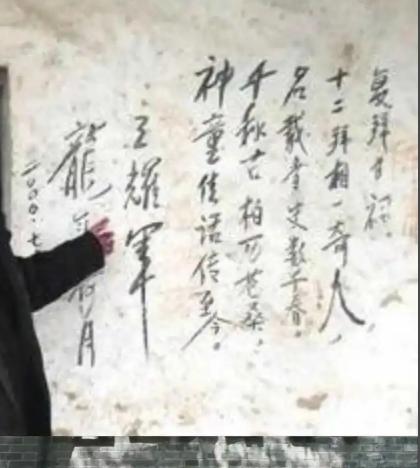 拜甘祠。
十二拜相一奇人，
名载青史数千春。
千秋古柏历苍桑，
神童佳话传至今。
王耀军
龍年 月
二000.七